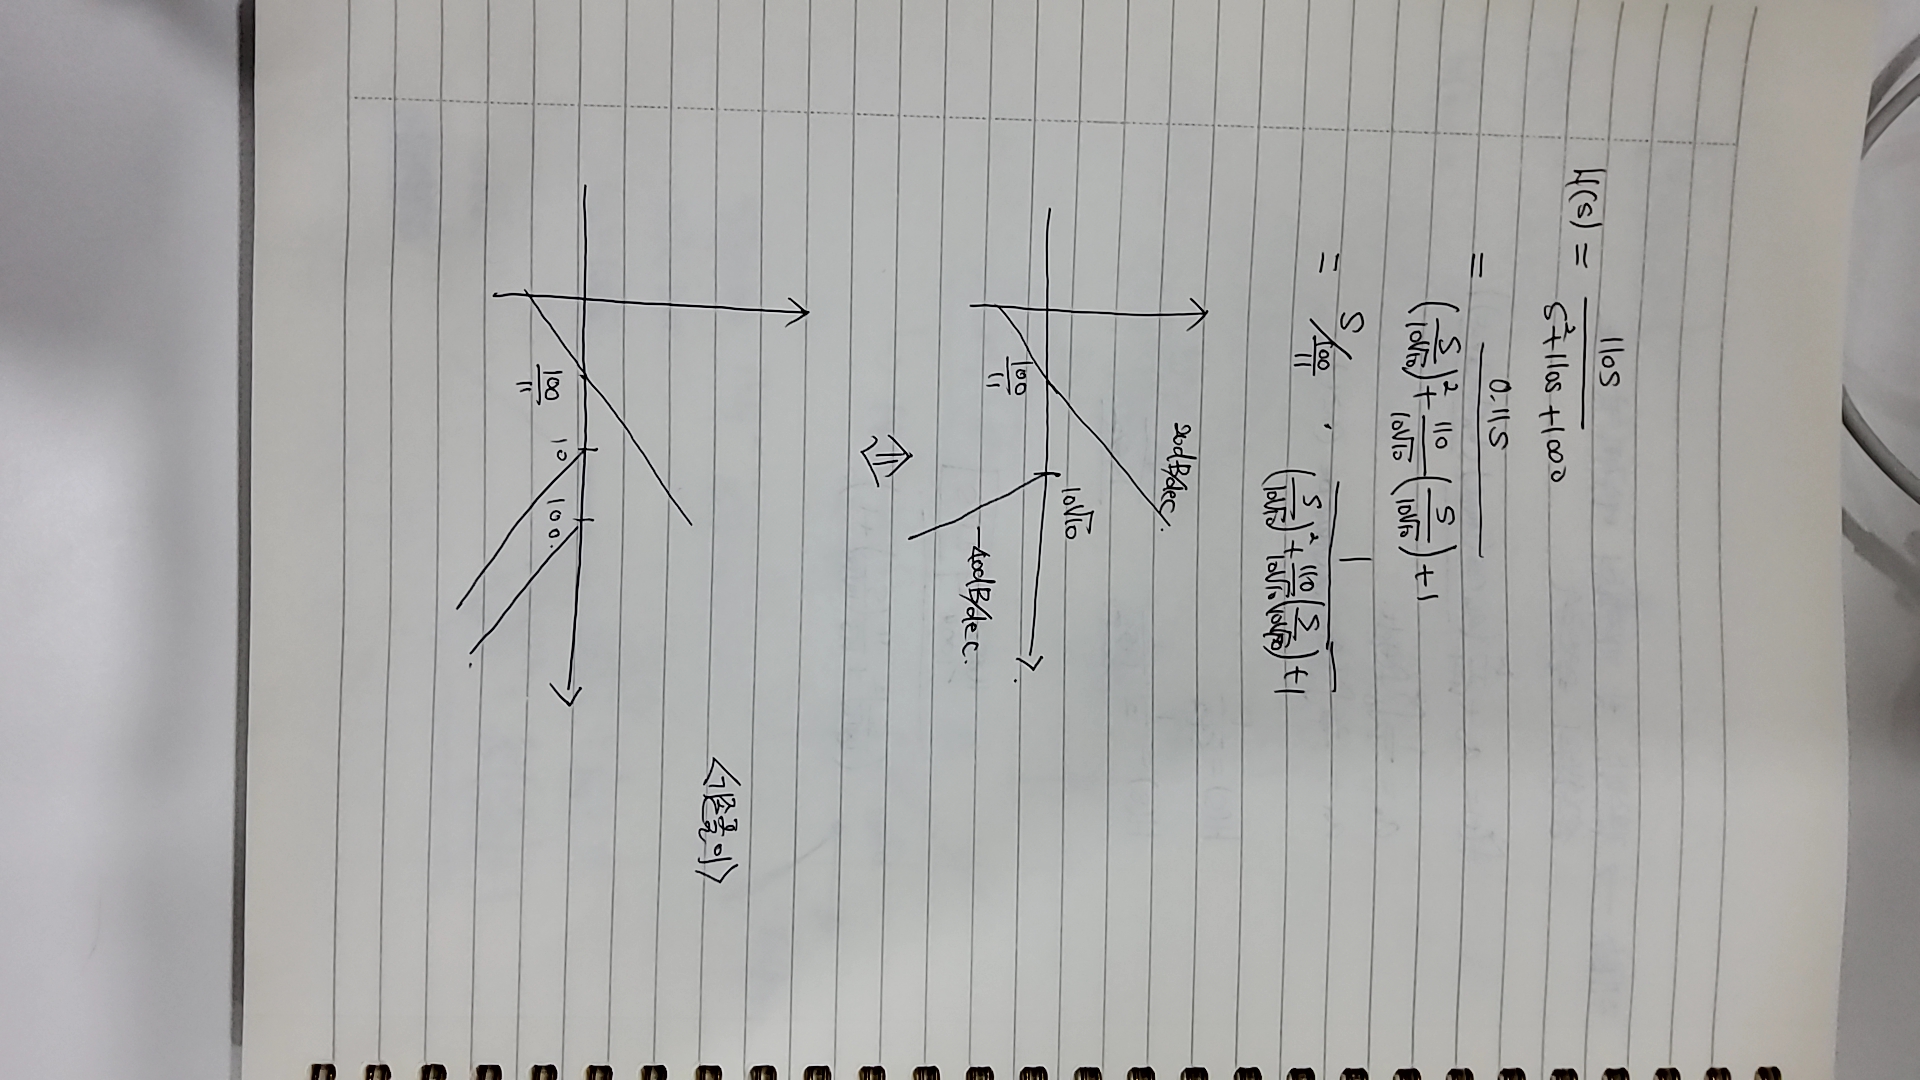 H(s) = 110s / s²+110s+1000
= 0.11s / (s/10√10)² + 110/10√10 (s/10√10) + 1
= s/(100/11) · 1 / (s/10√10)² + 110/10√10 (s/10√10) + 1
20dB/dec.
10√10
100/11
-40dB/dec.
⇓
<기존풀이>
10 100.
100/11